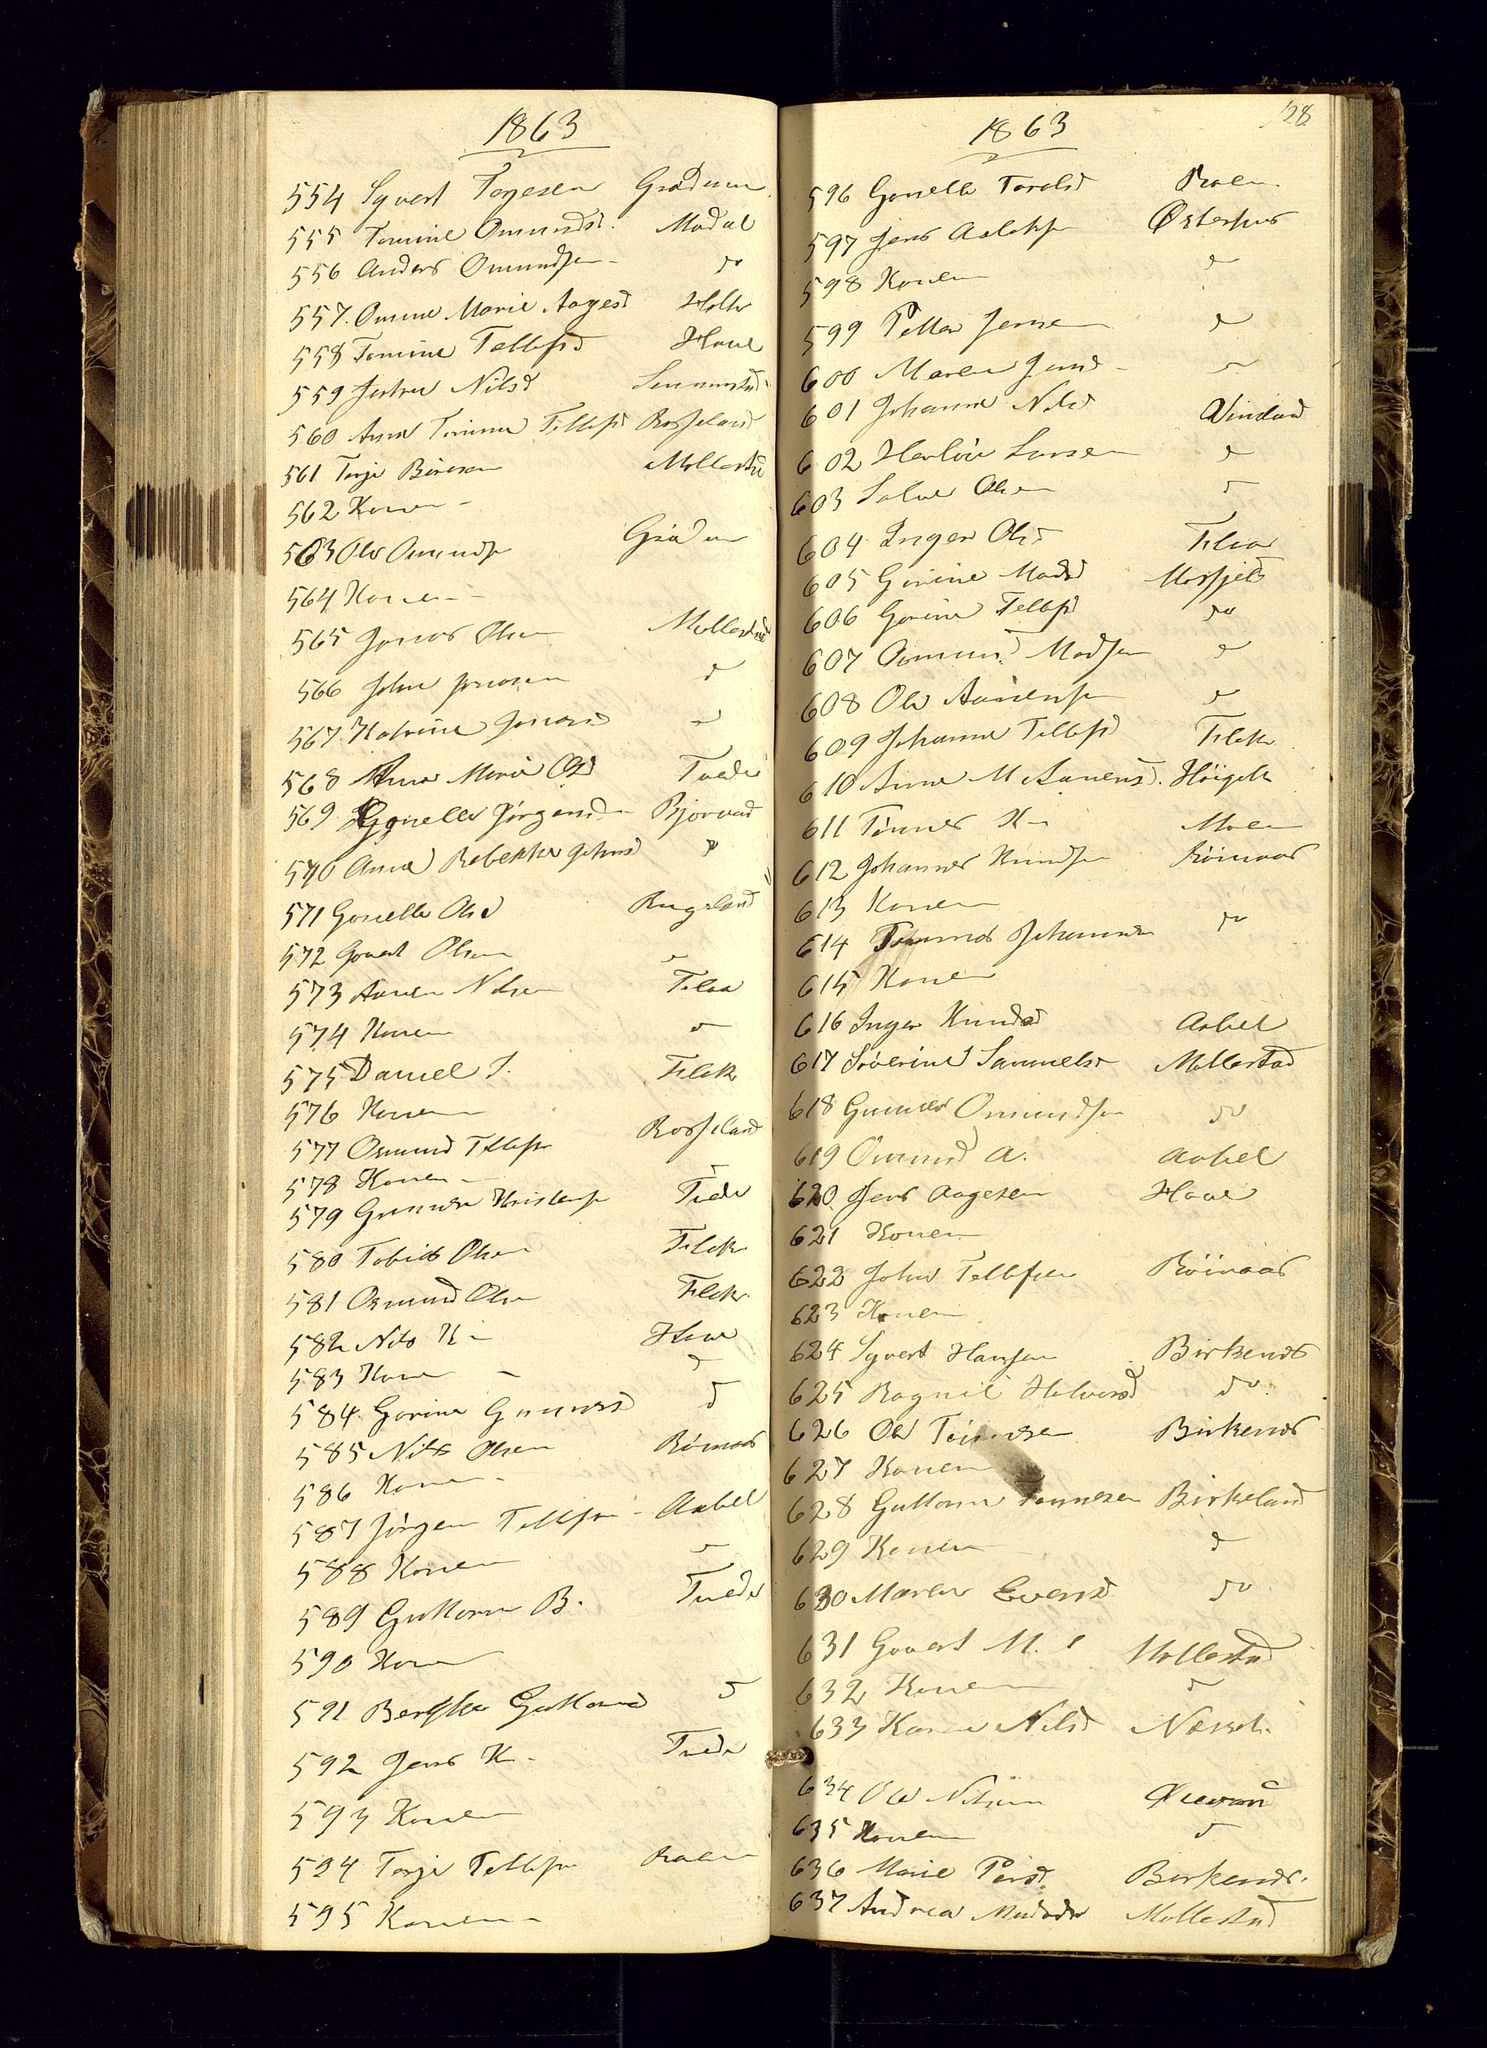 1863
554 Syvert Torjesen Grødum
555 Tomine Omundsd. Mødal
556 Anders Omundsen - do
557. Omine Marie Aagesd Holte
558 Tomine Tellefsd Have
559 Nilsd
560 Anne Tomine Tellefsd Rosseland
561 Torje Børesen Mollestad
562 Konen -
563 Ole Omunds Grødum
564 Konen -
565 Jonas Olsen Mollestad
566 John Jonasen d
567. Katrine Jonasd d
568 Anne Marie Olsd Tvede
569 Gunelle Jørgensd Bjorvad
570 Anne Rebekke Johnsd d
571 Gonelle Olsd Rugsland
572 Govert Olsen d
573 Aanen Nilsen Tilaa
574 Konen d
575 Daniel J. Flek
576 Konen
577 Osmund Tellefs Rosseland
578 Konen -
579 Gunder Kristens Tvede
580 Tobias Olsen Flek
581 Osmund Olsen Flek
582 Nils K - Have
583 Konen - d
584. Gorine Gunersd d
585 Nils Olsen Røinaas
586 Konen -
587 Jørgen Tellefsen - Aabel
588 Konen d
589 Guttorm B. Tvede
590 Konen
591 Berthe Guttormsd d
592 Jens K - Tvede
593 Konen
594 Torje Tellefsen Raen
595 Konen -
1863 128
596 Gonelle Toralsd Raen
597 Jens Aslaks Østerhus
598 Konen d
599 Petter Jensen d
600 Maren Jensd - d
601 Johanne Nilsd Vindland
602 Larsen d
603 Salve Olsen d
604 Inger Olsd Tilaa
605 Gorine Madsd Mosfjeld
606 Gorine Tellefsd do
607 Osmund Madsen d
608 Ole Aanensen d
609 Johanne Tellefsd Flek
610 Anne M Aanensd. Høigilt
611 Tønnes K - Moen
612 Johannes Knudsen Røinaas
613 Konen
614 Tønnes Johannesen do
615 Konen
616 Inger Knudsd Aabel
617 Severine Samuelsd Mollestad
618 Gunder Omundsen do
619 Omund A. Aabel
620 Jens Aagesen Have
621 Konen
622 John Tellefsen Røinaas
623 Konen
624 Syvert Hansen Birkenes
625 Ragnil Halvorsd do
626 Ole Tønnesen Birkenes
627 Konen
628 Guttorm Tønnesen Birkeland
629 Konen d
630 Maren Evensd do
631 Govert M. Mollestad
632 Konen d
633 Karen Nilsd
634 Ole Nilsen
635 Konen d
636 Marie Persd. Birkenes.
637 Andrea Mollestad